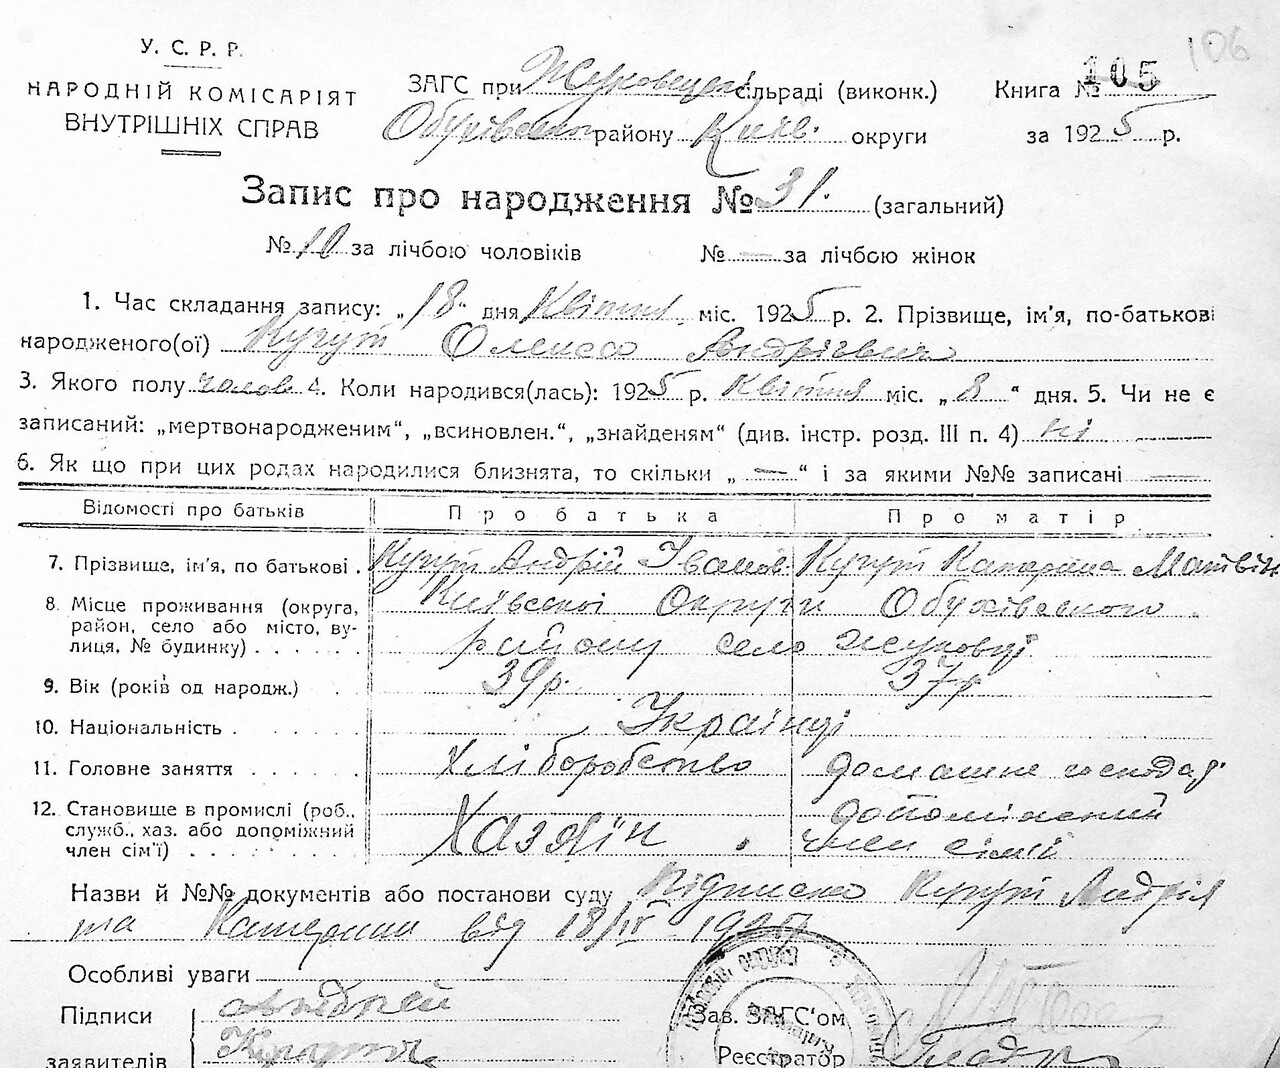 106
У. С. Р. Р.
НАРОДНІЙ КОМІСАРІЯТ
ВНУТРІШНІХ СПРАВ
ЗАГС при Жуковецькій сільраді (виконк.)
Книга № 105
Обухівського району Київ. округи за 1925 р.
Запис про народження № 31. (загальний)
№ 10 за лічбою чоловіків № — за лічбою жінок
1. Час складання запису: „18“ дня Квітня міс. 1925 р. 2. Прізвище, ім'я, по-батькові
народженого(ої) Кугут Олексо Андрієвич
3. Якого полу чолов 4. Коли народився(лась): 1925 р. Квітня міс. „8“ дня. 5. Чи не є
записаний: „мертвонародженим“, „всиновлен.“, „знайденям“ (див. інстр. розд. III п. 4) ні
6. Як що при цих родах народилися близнята, то скільки „—“ і за якими №№ записані —
Відомості про батьків Про батька Про матір
7. Прізвище, ім'я, по батькові . Кугут Андрій Іванов. Кугут Катерина Матвіїв
8. Місце проживання (округа, Київської Округи Обухівського
район, село або місто, ву-
лиця, № будинку) . . . . . . району село Жуковці
9. Вік (років од народж.) . . 39р. 37р
10. Національність . . . . . . Українці
11. Головне заняття . . . . . . Хліборобство домашнє господар.
12. Становище в промислі (роб., допоміжний
служб., хаз. або допоміжний Хазяїн член сімії
член сім'ї) . . . . . . . .
Назви й №№ документів або постанови суду Підписка Кугут Андрія
та Катерини від 18/IV 1925
Особливі уваги
Підписи Андрей
заявителів Кугут
Зав. ЗАГС'ом
Реєстратор